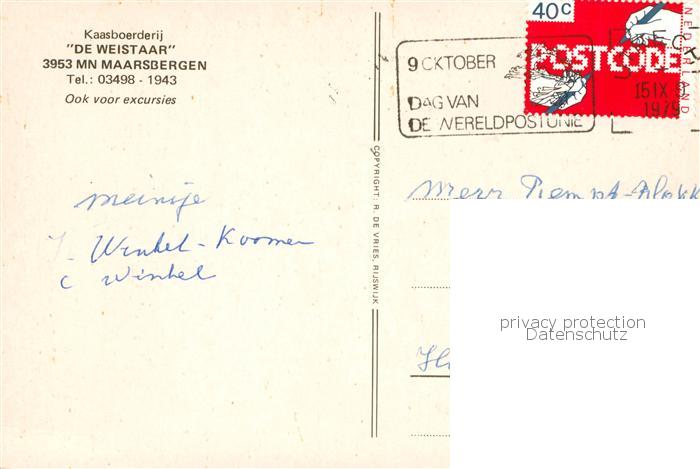 Kaasboerderij
"DE WEISTAAR"
3953 MN MAARSBERGEN
Tel.: 03498 - 1943
Ook voor excursies
40c
NEDERLAND
POSTCODE
9 OKTOBER
DAG VAN
DE WERELDPOSTUNIE
15 IX
1979
COPYRIGHT: R. DE VRIES, RIJSWIJK
meintje
Winkel - Koomen
C Winkel
privacy protection
Datenschutz